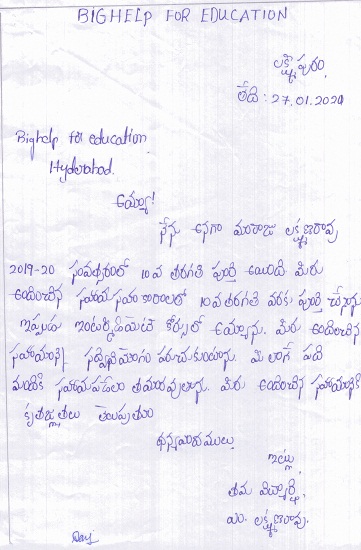 BIGHELP FOR EDUCATION
లక్ష్మీపురం,
తేది : 27.01.2021
Bighelp for education
Hyderabad.
అయ్యా!
నేను అనగా మంరాజు లక్ష్మణరావు
2019-20 సంవత్సరంలో 10వ తరగతి పూర్తి అయింది మీరు
అందించిన సహాయసహకారాలలో 10వ తరగతి వరకు పూర్తి చేసాను
ఇప్పుడు ఇంటర్మీడియెట్ కోర్సులో ఉన్నాను. మీరు అందించిన
సహాయాన్ని సద్వినియోగం పరుచుకుంటాను. మీ లాగే పది
మందికి సహాయపడేలా తయారవుతాను. మీరు అందించిన సహాయానికి
కృతజ్ఞతలు తెలుపుతూ
ధన్యవాదములు.
ఇట్లు,
తమ విద్యార్థి,
యం. లక్ష్మణరావు.